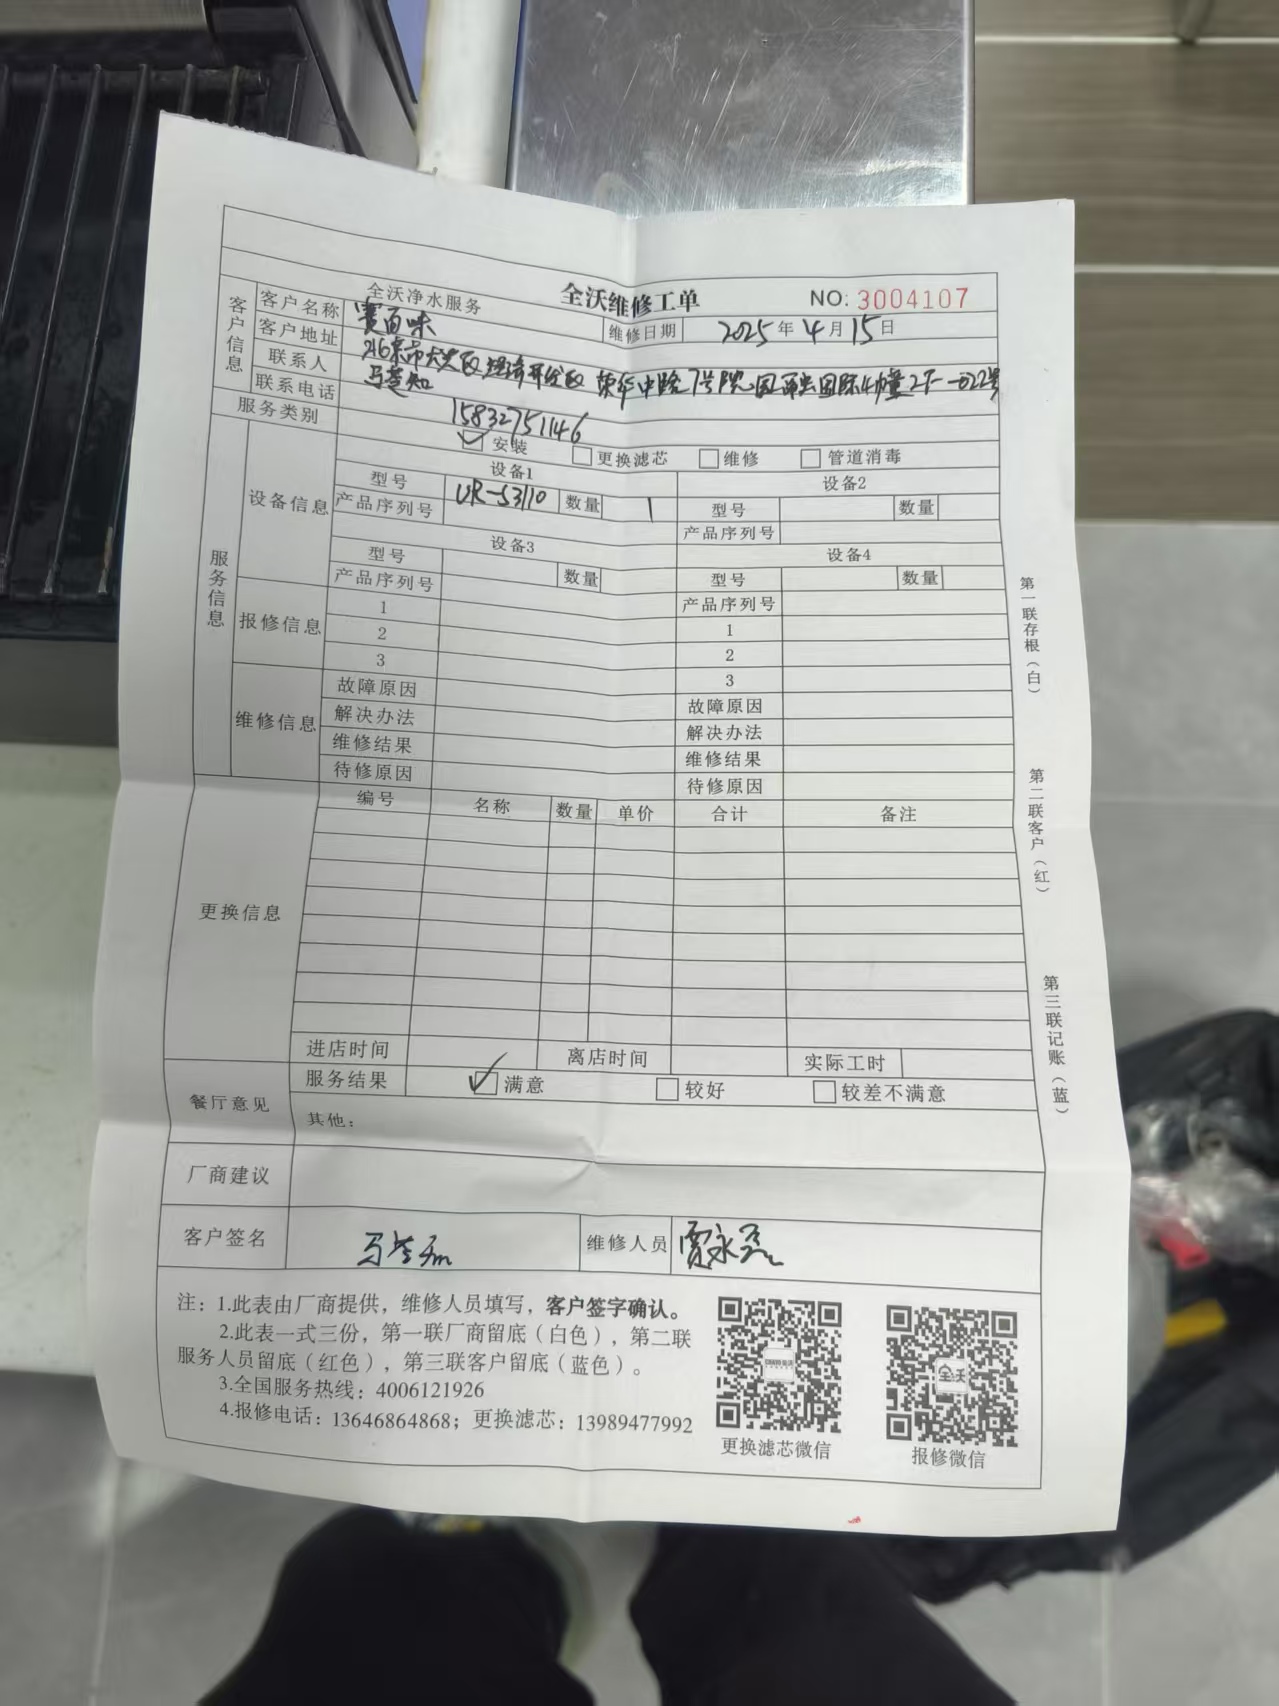 全沃净水服务 全沃维修工单 NO: 3004107
客户信息
客户名称 赛百味 维修日期 2025年4月15日
客户地址 北京市大兴区经济开发区 荣华中路7号院 国际4幢2F-022号
联系人 马楚知
联系电话 15832751146
服务类别 安装 更换滤芯 维修 管道消毒
服务信息
设备信息
设备1 设备2
型号 UR-53110 数量 1 型号 数量
产品序列号 产品序列号
设备3 设备4
型号 数量 型号 数量
产品序列号 产品序列号
报修信息
1 1
2 2
3 3
维修信息
故障原因 故障原因
解决办法 解决办法
维修结果 维修结果
待修原因 待修原因
更换信息
编号 名称 数量 单价 合计 备注
进店时间 离店时间 实际工时
餐厅意见
服务结果 满意 较好 较差不满意
其他：
厂商建议
客户签名 马 维修人员 贾永
注：1.此表由厂商提供，维修人员填写，客户签字确认。
2.此表一式三份，第一联厂商留底（白色），第二联
服务人员留底（红色），第三联客户留底（蓝色）。
3.全国服务热线：4006121926
4.报修电话：13646864868；更换滤芯：13989477992
全沃
更换滤芯微信 报修微信
第一联存根（白）
第二联客户（红）
第三联记账（蓝）